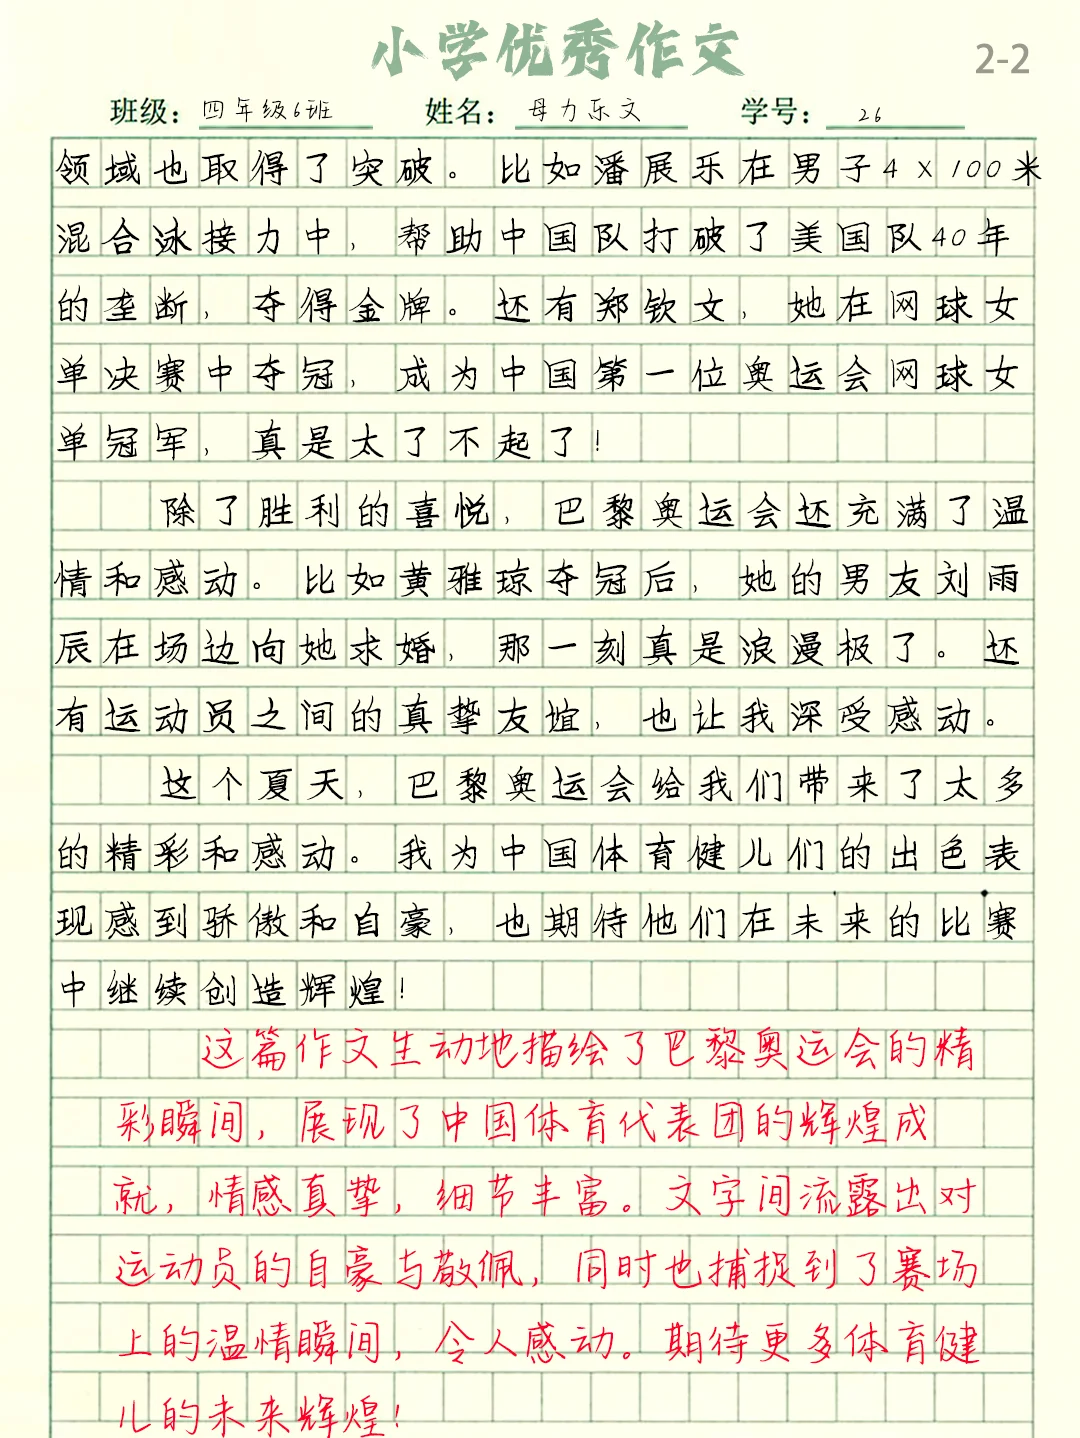 小学优秀作文
2-2
班级：四年级6班 姓名：母力乐文 学号：26
领域也取得了突破。比如潘展乐在男子4×100米
混合泳接力中，帮助中国队打破了美国队40年
的垄断，夺得金牌。还有郑钦文，她在网球女
单决赛中夺冠，成为中国第一位奥运会网球女
单冠军，真是太了不起了！
除了胜利的喜悦，巴黎奥运会还充满了温
情和感动。比如黄雅琼夺冠后，她的男友刘雨
辰在场边向她求婚，那一刻真是浪漫极了。还
有运动员之间的真挚友谊，也让我深受感动。
这个夏天，巴黎奥运会给我们带来了太多
的精彩和感动。我为中国体育健儿们的出色表
现感到骄傲和自豪，也期待他们在未来的比赛
中继续创造辉煌！
这篇作文生动地描绘了巴黎奥运会的精
彩瞬间，展现了中国体育代表团的辉煌成
就，情感真挚，细节丰富。文字间流露出对
运动员的自豪与敬佩，同时也捕捉到了赛场
上的温情瞬间，令人感动。期待更多体育健
儿的未来辉煌！